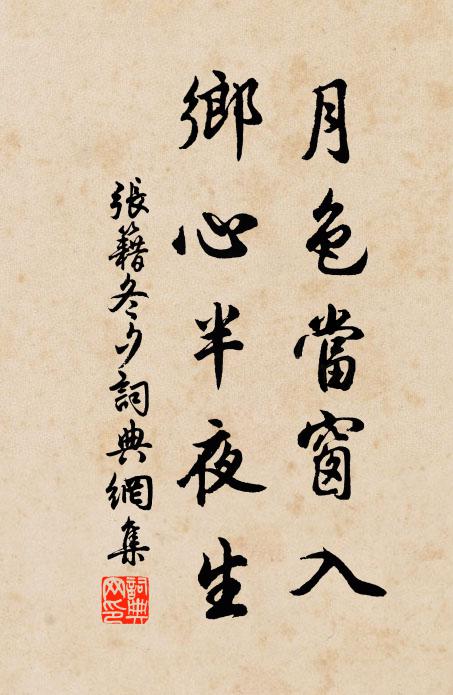 月色當窗入
鄉心半夜生
張籍冬夕詞典網集
詞典网印